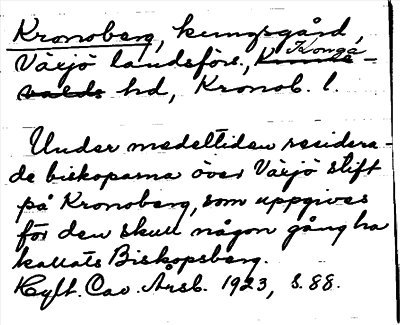 Kronoberg, kungsgård,
Växjö landsförs., Konga
hd, Kronob. l.
Under medeltiden residera-
de biskoparna över Växjö stift
på Kronoberg, som uppgives
för den skull någon gång ha
kallats Biskopsberg.
Hylt. Cav. Årsb. 1923, s. 88.